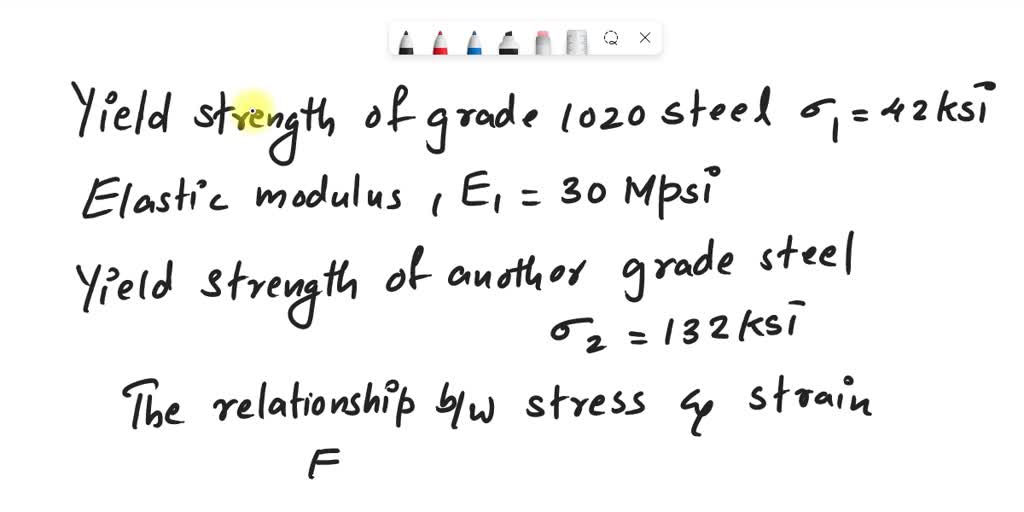 Yield strength of grade 1020 steel σ₁ = 42ksi
Elastic modulus, E₁ = 30 Mpsi
Yield strength of anothor grade steel
σ₂ = 132ksi
The relationship b/w stress & strain
E